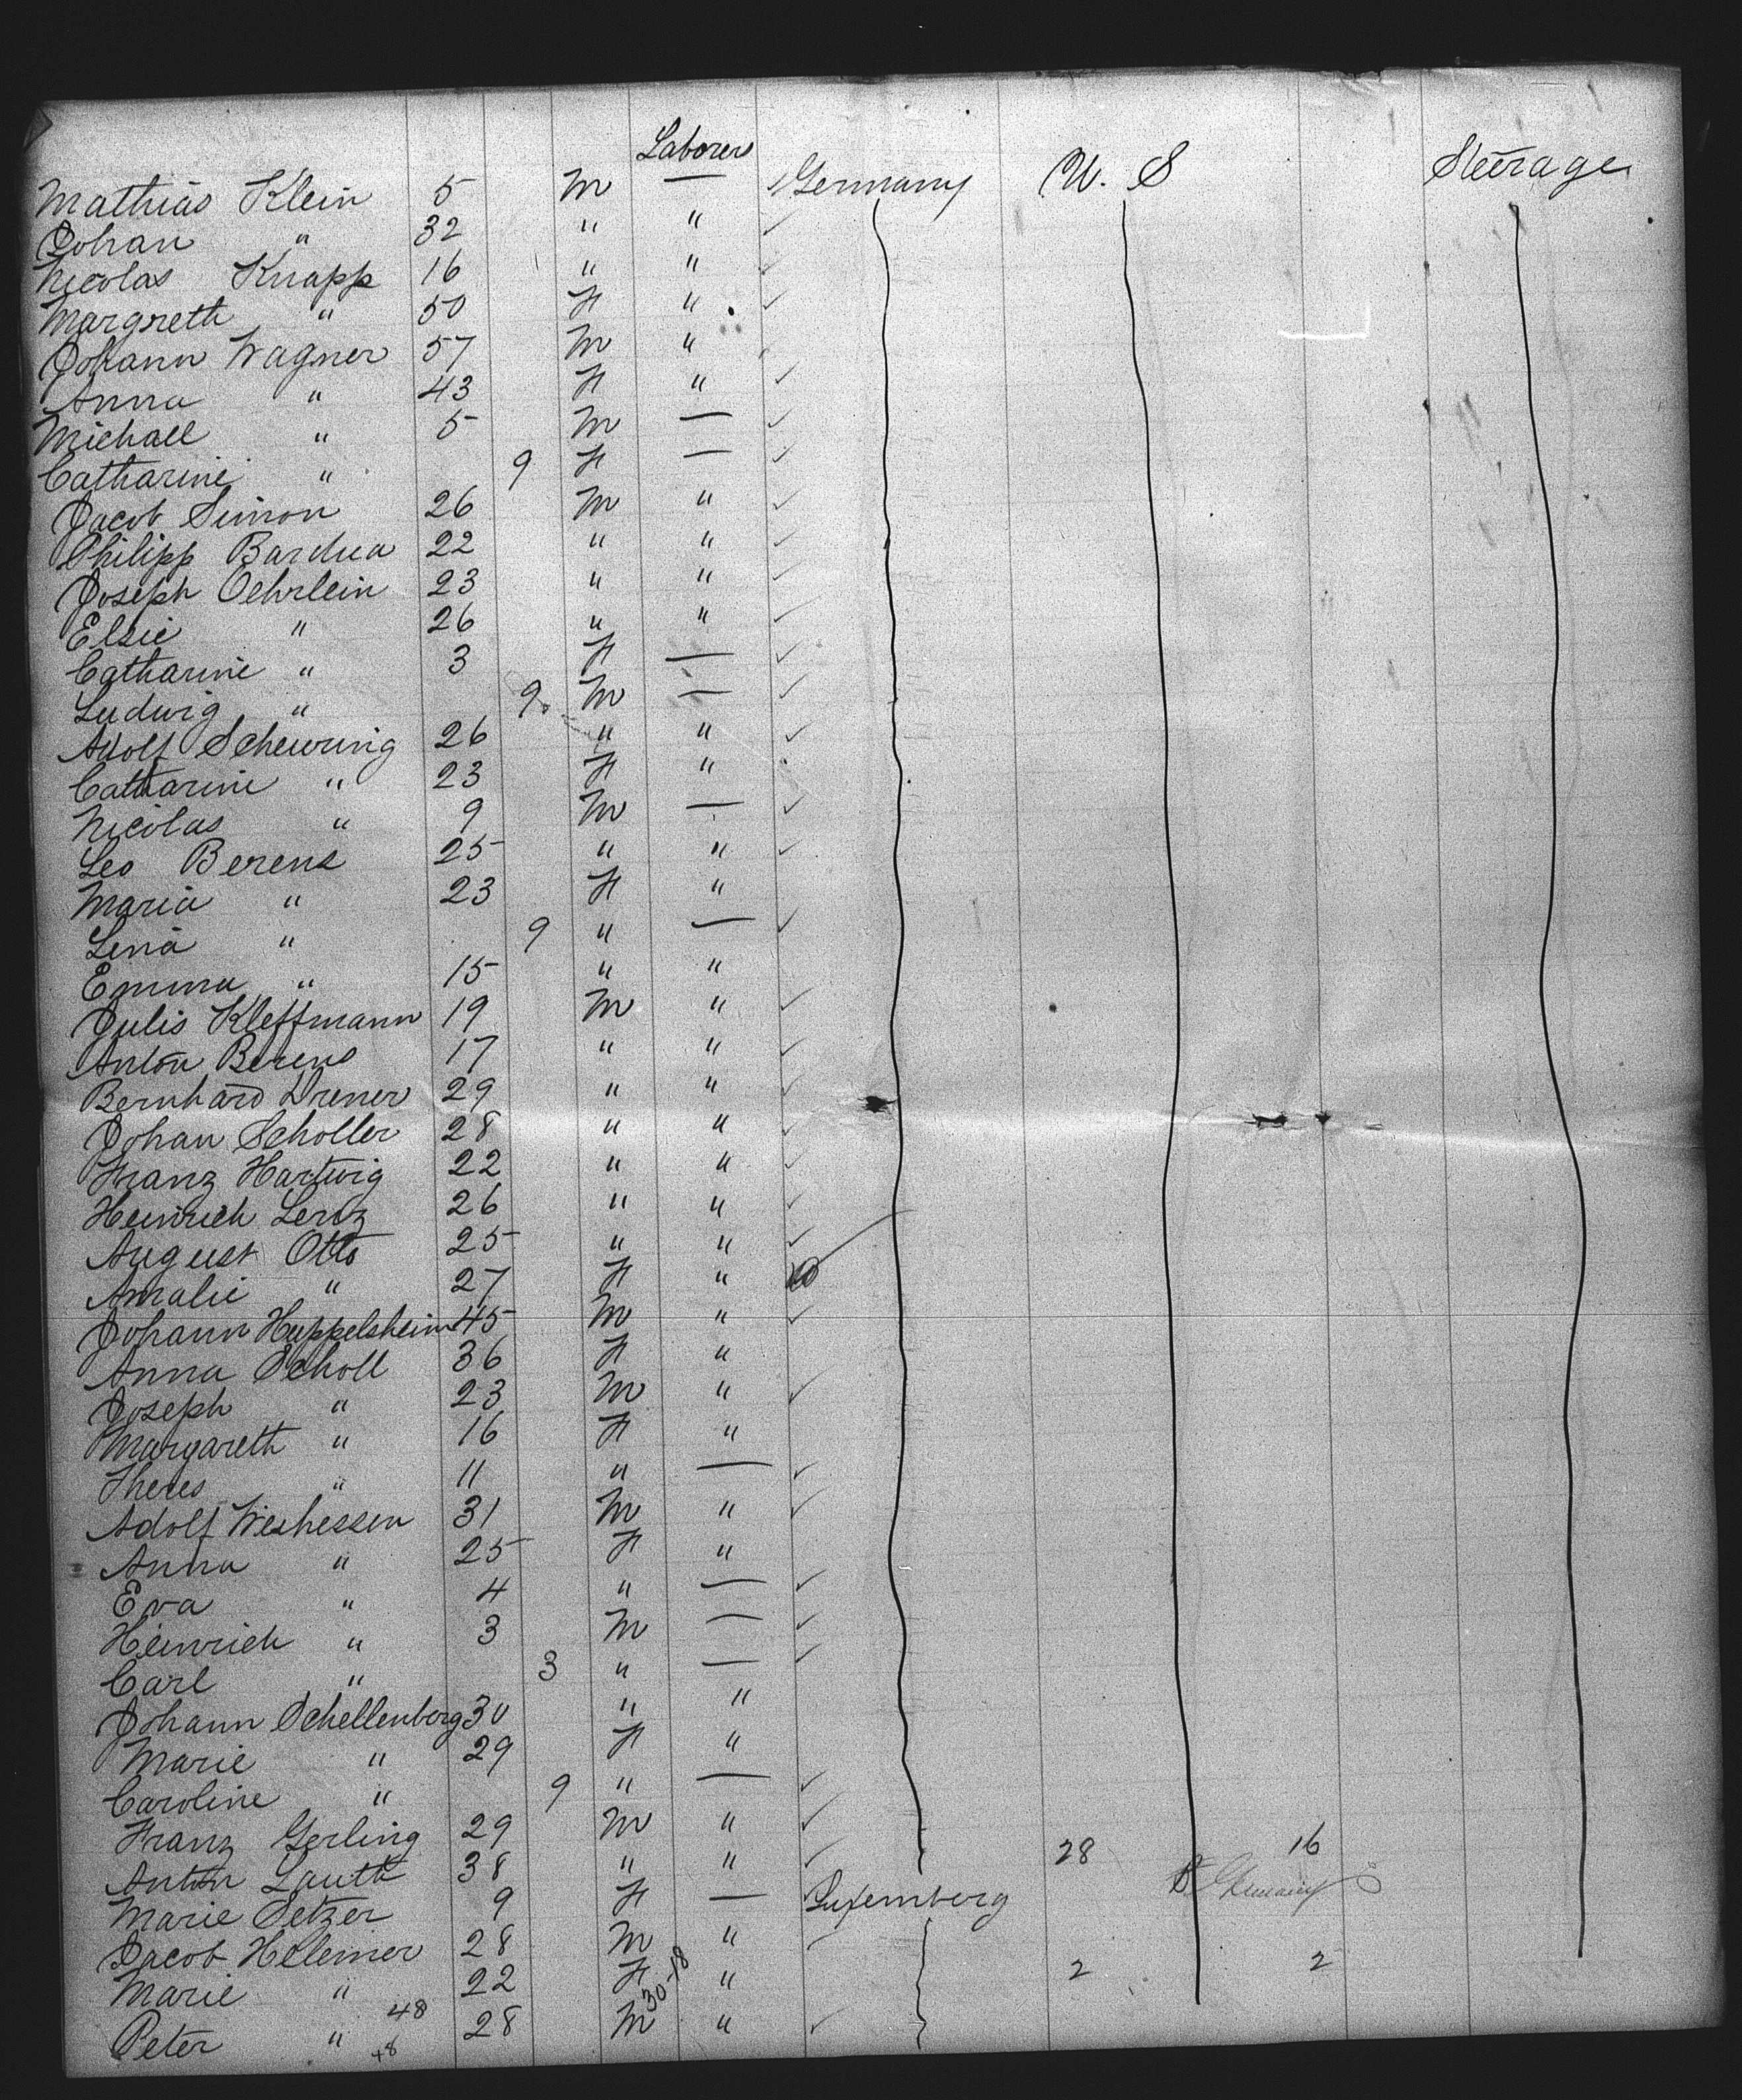 Laborers
Mathias Klein 5 M — Germany U. S Steerage
Johan " 32 " "
Nicolas Knapp 16 " "
Margreth " 50 F "
Johann Wagner 57 M "
Anna " 43 F "
Michael " 5 M —
Catharine " 9 F —
Jacob Simon 26 M "
Philipp Bardua 22 " "
Joseph Oehrlein 23 " "
Elsie " 26 " "
Catharine " 3 F —
Ludwig " 9 M —
Adolf Scheuring 26 " "
Catharine " 23 F "
Nicolas " 9 M —
Leo Berens 25 " "
Maria " 23 F "
Lena " 9 " —
Emma " 15 " "
Julis Kleffmann 19 M "
Anton Berens 17 " "
Bernhard Drener 29 " "
Johan Scholler 28 " "
Franz Hartwig 22 " "
Heinrich Lenz 26 " "
August Otto 25 " "
Amalie " 27 F "
Johann Huppelsheim 45 M "
Anna Scholl 36 F "
Joseph " 23 M "
Margareth " 16 F "
Theres " 11 " —
Adolf Weshessen 31 M "
Anna " 25 F "
Eva " 4 " —
Heinrich " 3 M —
Carl " 3 " —
Johann Schellenberg 30 " "
Marie " 29 F "
Caroline " 9 " —
Franz Gerling 29 M "
Anton Lauth 38 " " 28 16
Marie Setzer 9 F — Luxemberg Germany
Jacob Hellemer 28 M "
Marie " 22 F 30-18 " 2 2
Peter " 48 28 M "
48